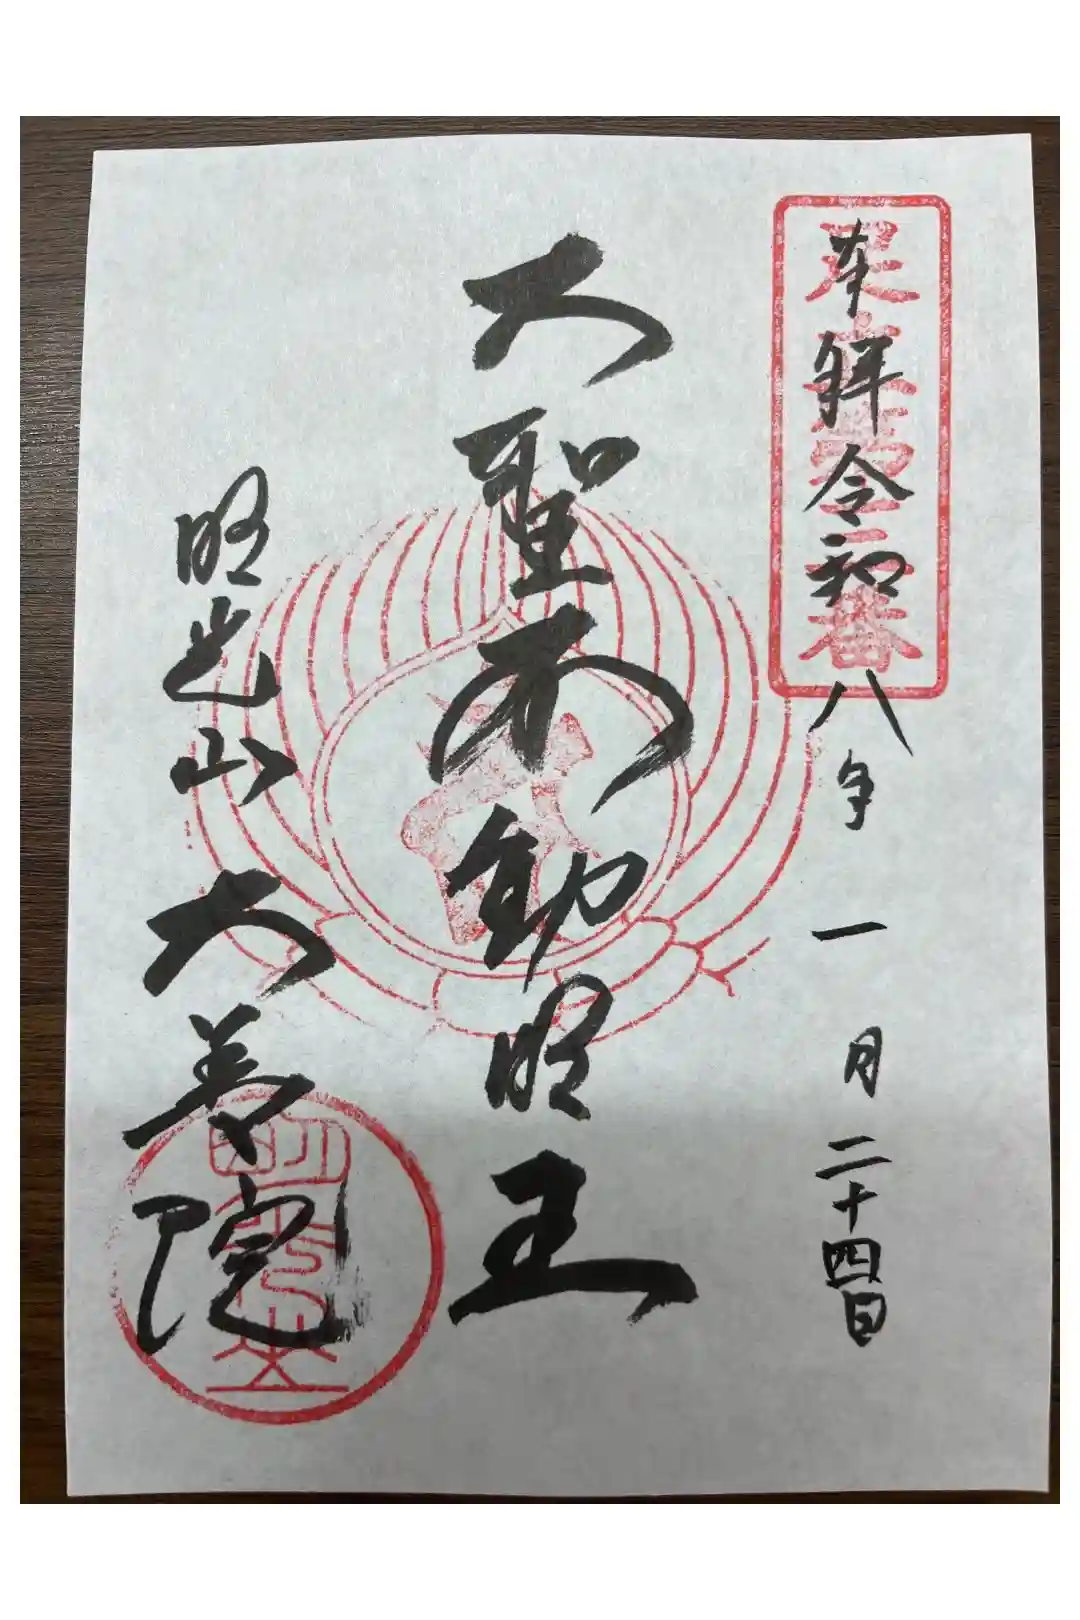 奉拝 令和八年 一月二十四日
大聖不動明王
明光山 大善院